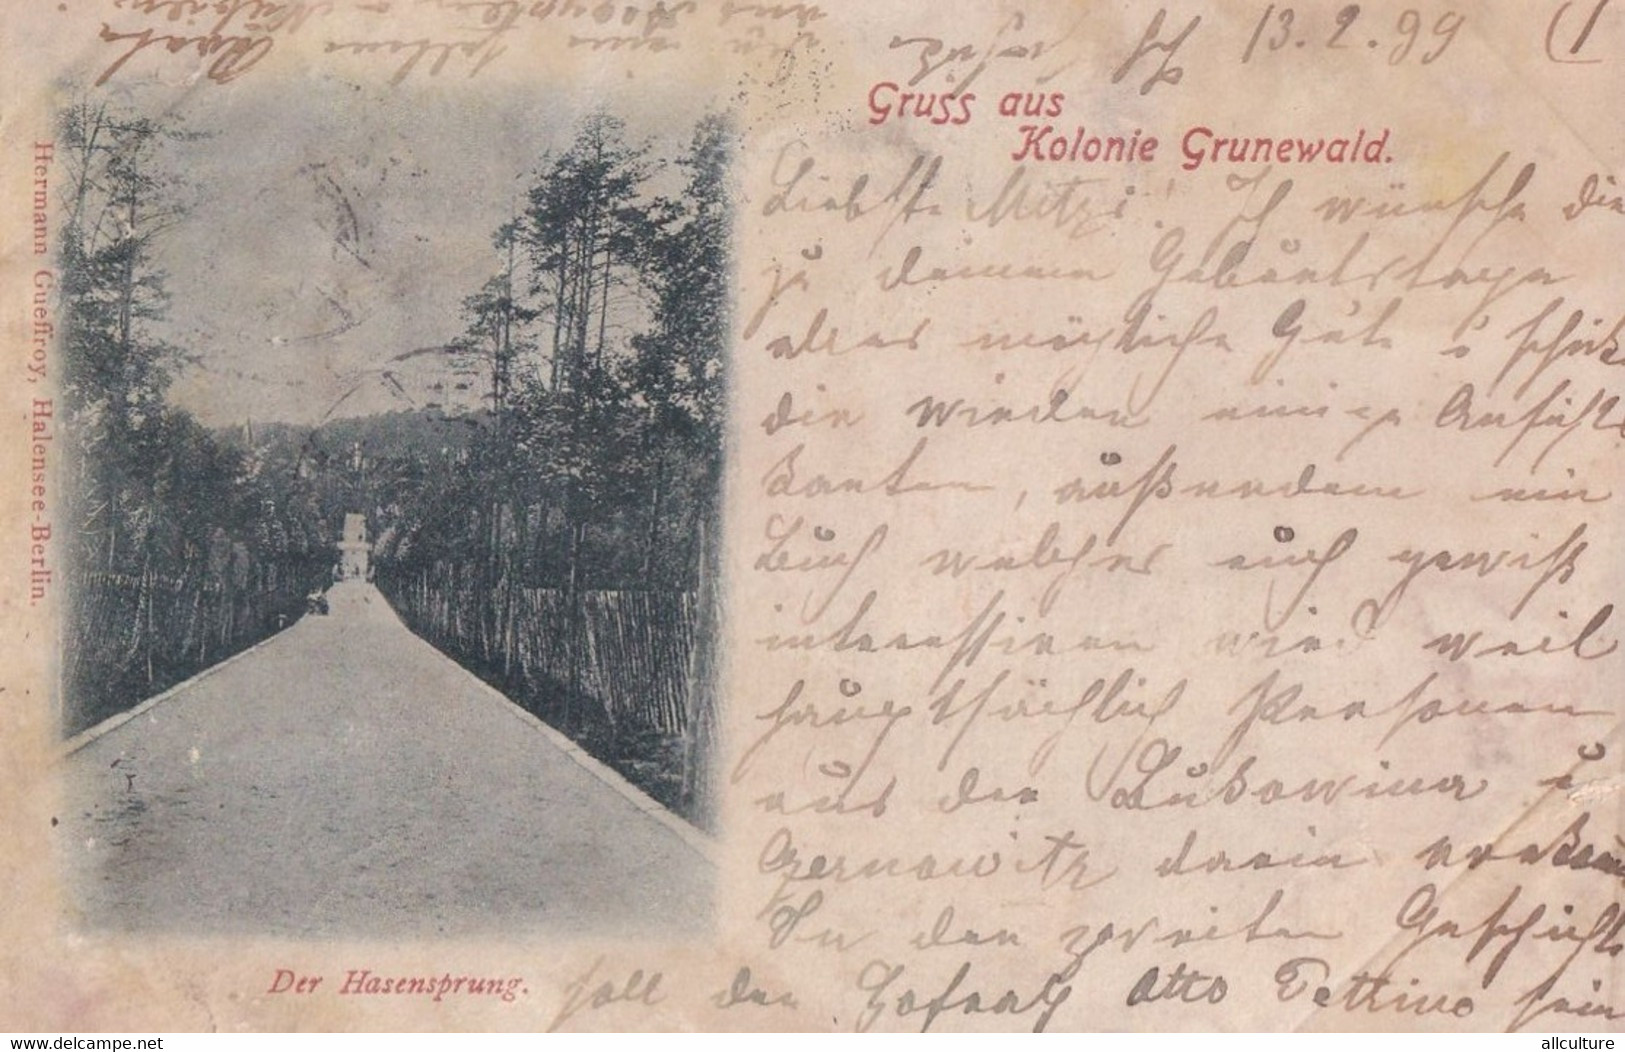 13.2.99
Gruss aus
Kolonie Grunewald.
Liebste Mitzi! Ich wünsche dir
zu deinem Geburtstage
alles mögliche Gute u schicke
dir wieder einige Ansichts
karten, außerdem ein
Buch welches euch gewiß
interessiren wird weil
hauptsächlich Personen
aus der Bukowina u
Czernowitz darin vorkom
In der zweiten Geschichte
soll der Hofrath Otto sein
Hermann Gueffroy, Halensee-Berlin.
Der Hasensprung.
www.delcampe.net
allculture